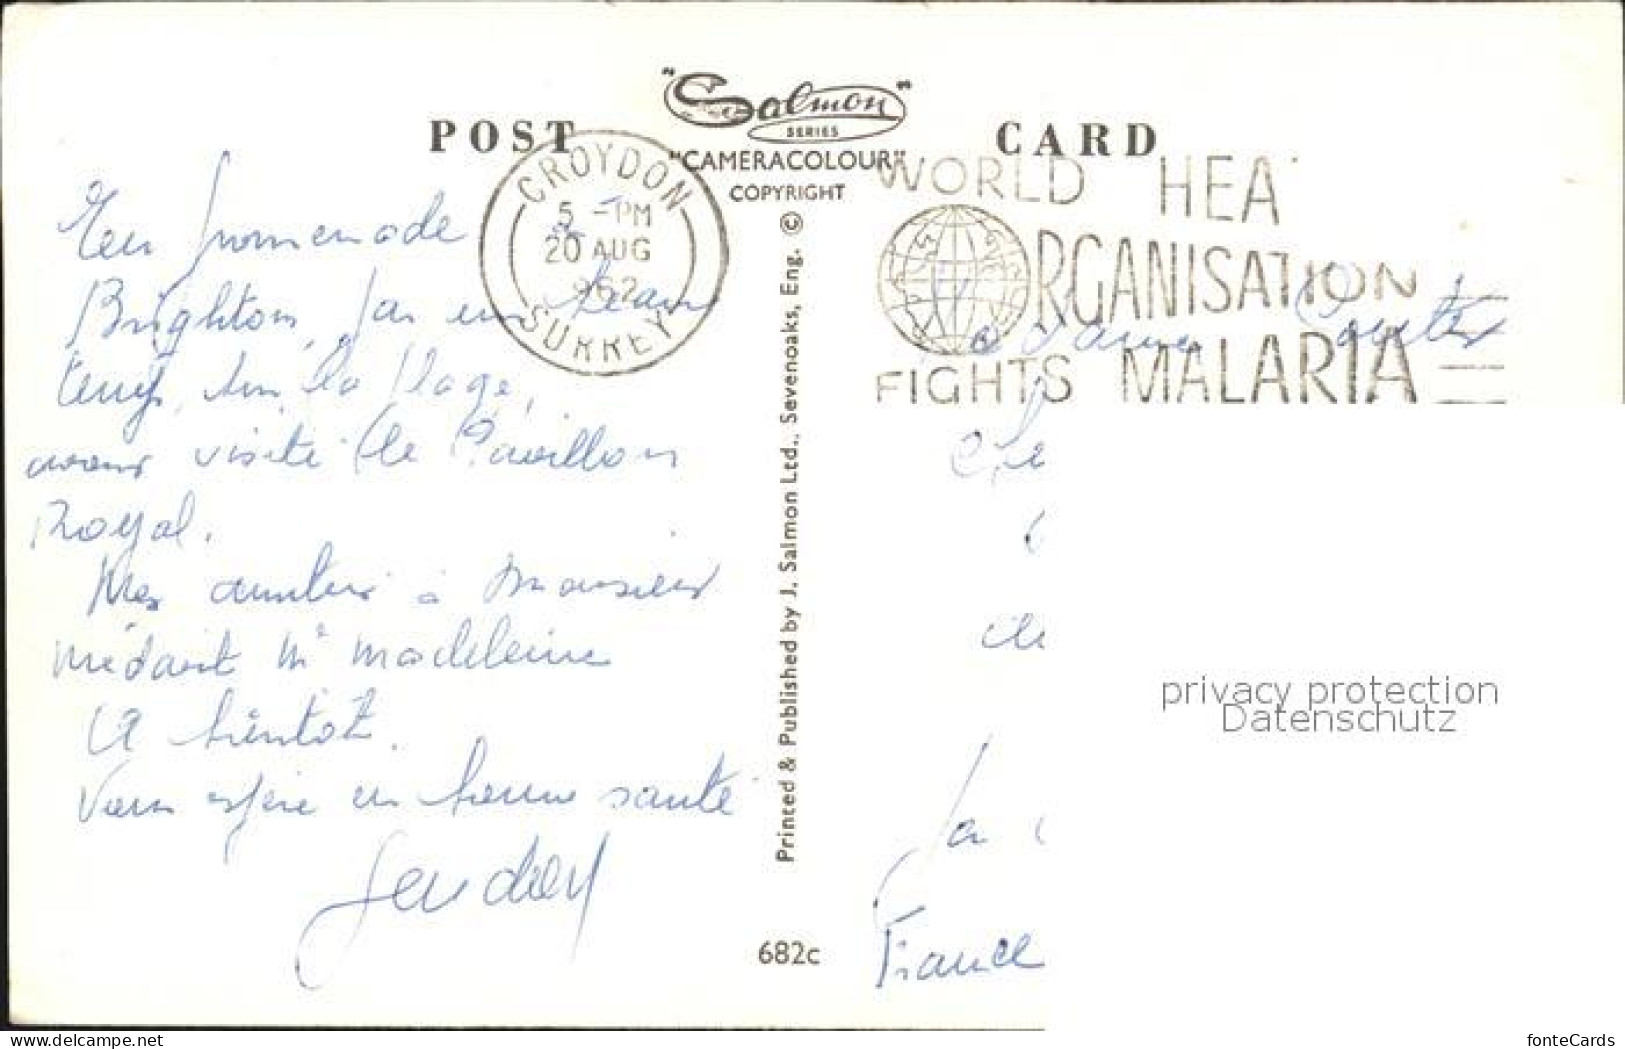 "Salmon"
SERIES
POST CARD
"CAMERACOLOUR"
COPYRIGHT
CROYDON
5 - PM
20 AUG
962
SURREY
WORLD HEA
ORGANISATION
FIGHTS MALARIA
En promenade
Brighton, par un beau
temps, sur la plage,
avons visité le Pavillon
Royal.
Mes amitiés à Monsieur
médart Me madeleine
A bientôt.
Vous espère en bonne santé
Printed & Published by J. Salmon Ltd., Sevenoaks, Eng. ©
682c
France
privacy protection
Datenschutz
delcampe.net
fonteCards